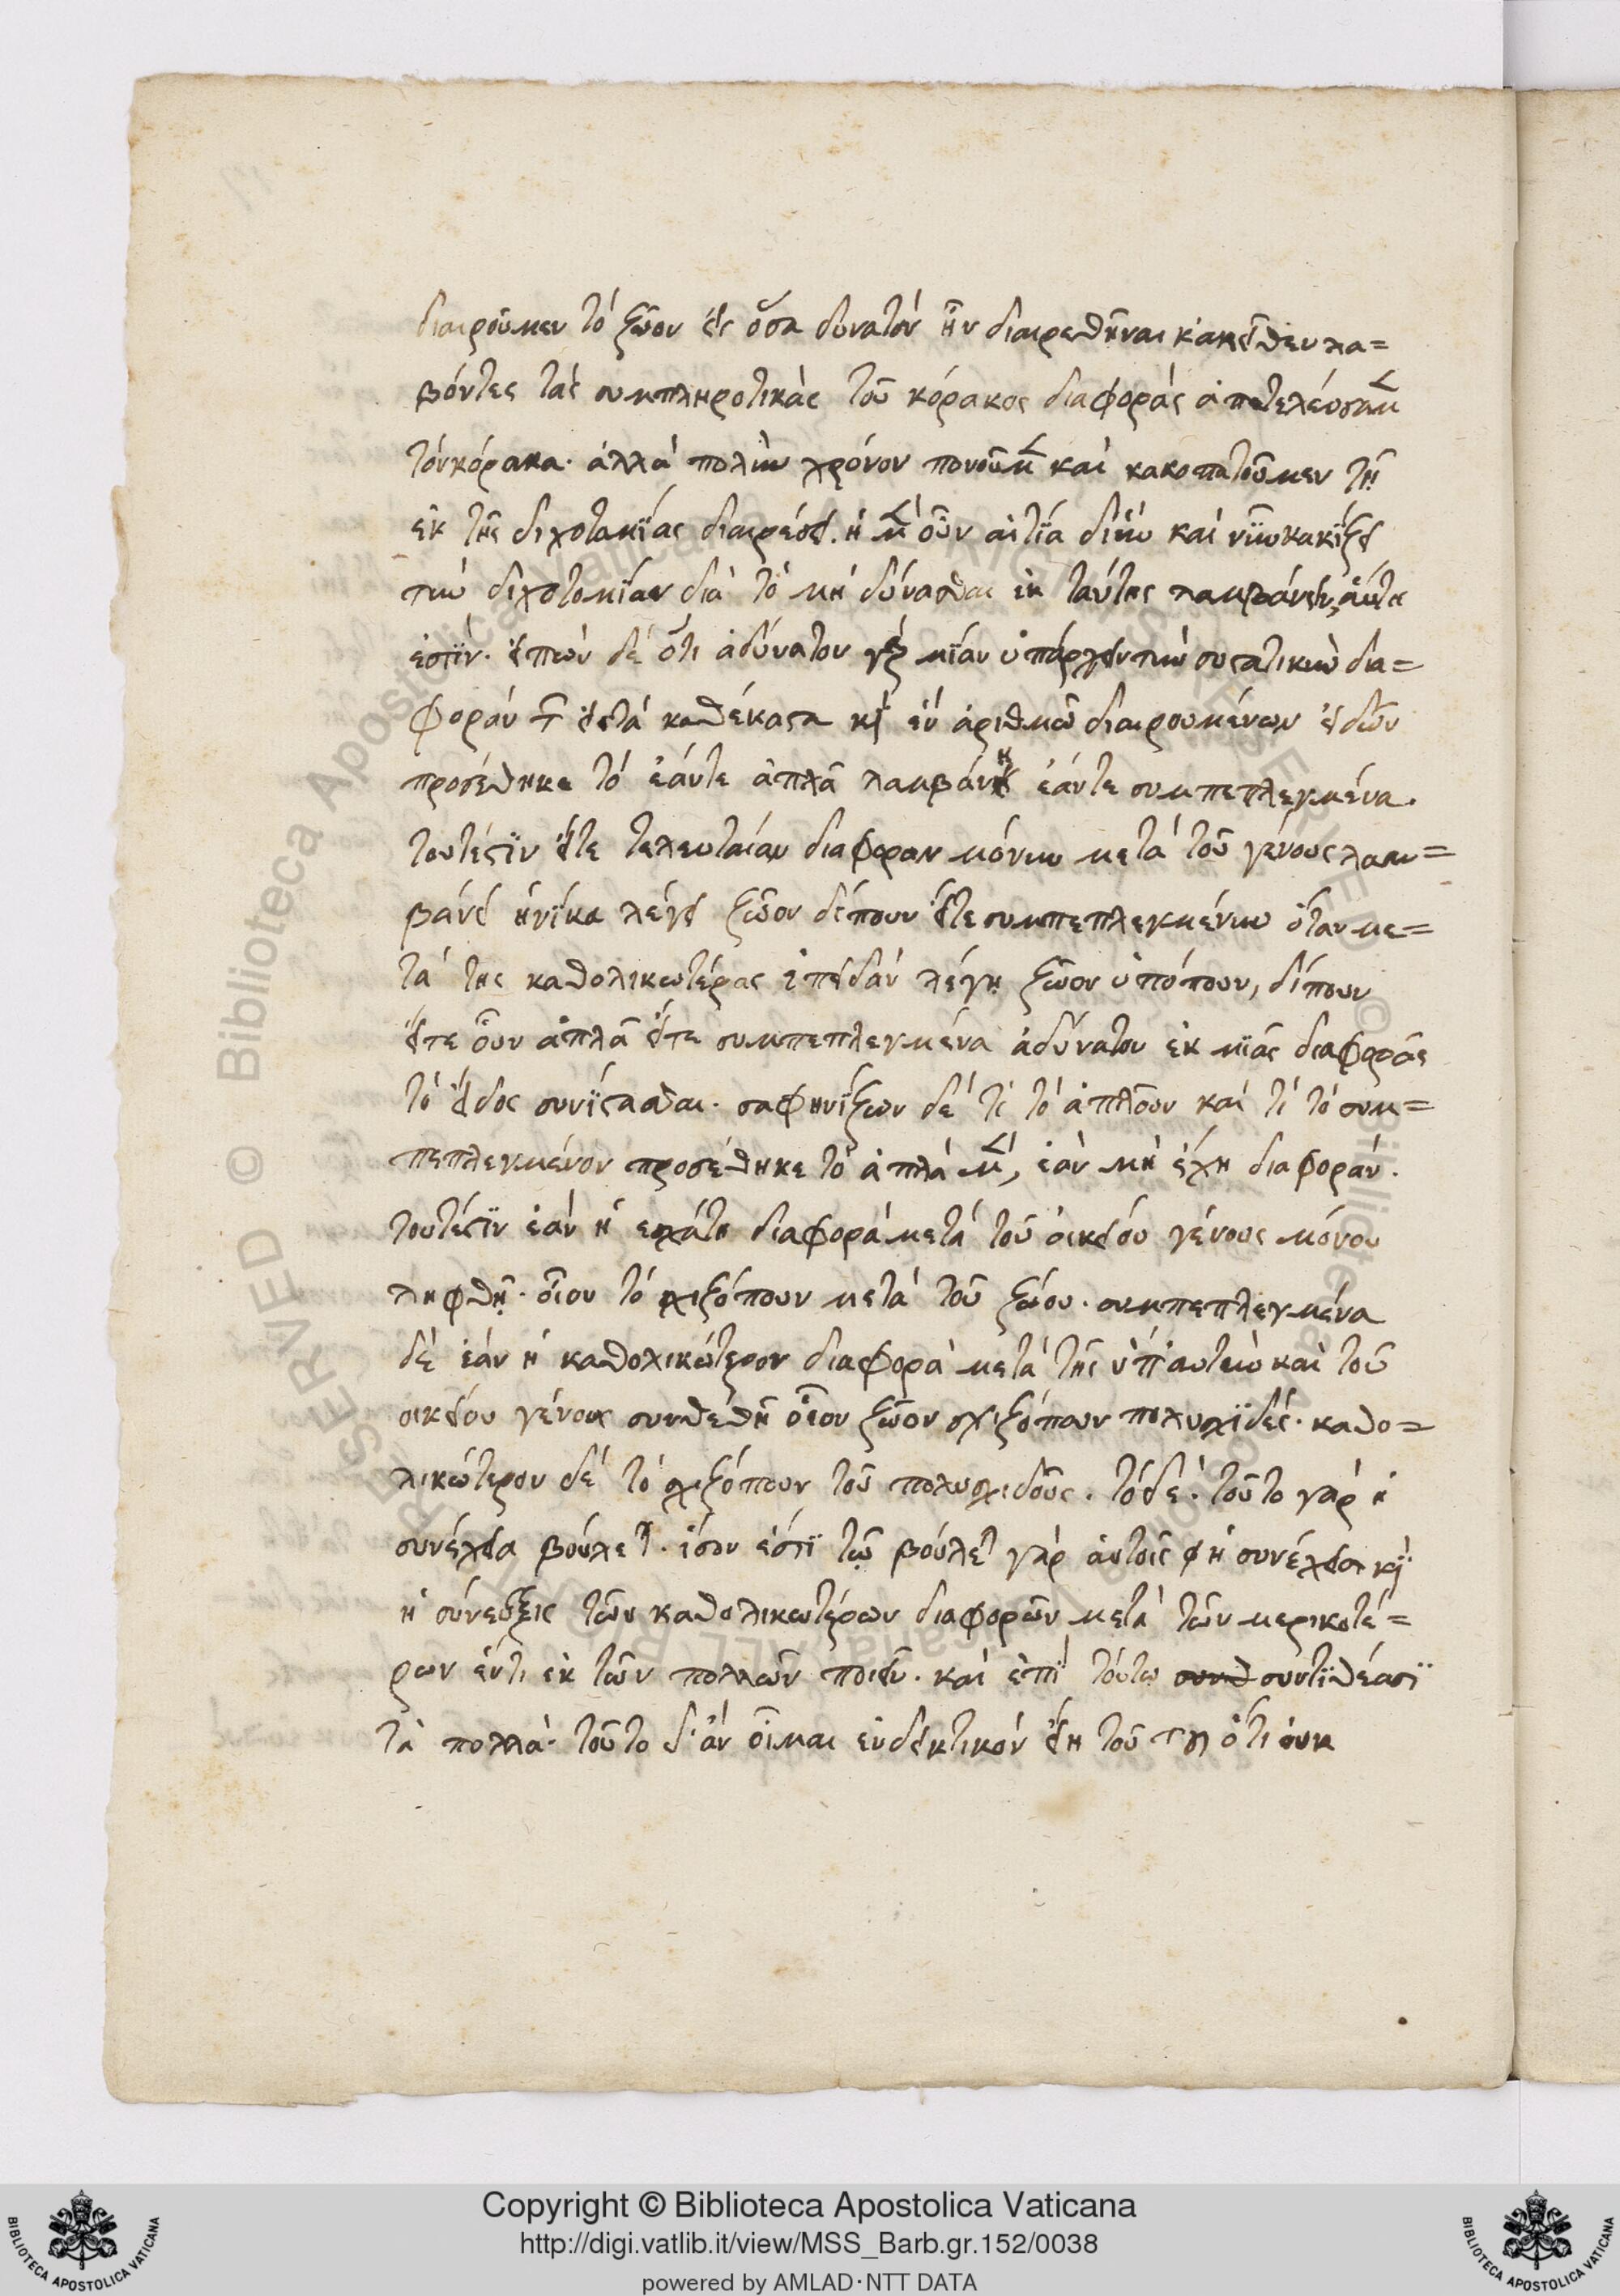 διαιροῦμεν τὸ ζῶον εἰς ὅσα δυνατὸν ἦν διαιρεθῆναι κἀκεῖθεν λα=
βόντες τὰς συμπληροτικὰς τοῦ κόρακος διαφορὰς ἀπετελέσαμ
τὸν κόρακα· ἀλλὰ πολὺν χρόνον πονοῦμ καὶ κακοπατοῦμεν τῇ
ἐκ τῆς διχοτομΐας διαιρέσει. ἡ μ οὖν αἰτΐα δι' ἣν καὶ νῦν κακΐζει
τὴν διχοτομΐαν διὰ τὸ μὴ δύνασθαι ἐκ ταύτης λαμβάνειν, αὕτη
ἐστΐν. εἰπὼν δὲ ὅτι ἀδύνατον μΐαν ὑπάρχειν τὴν συστατικὴν δια=
φορὰν τ εἰς τὰ καθέκαστα κὶ ἐν ἀριθμῶ διαιρουμένων εἰδῶν
προσέθηκε τὸ ἐάντε ἁπλᾶ λαμβάνη ἐάντε συμπεπλεγμένα.
τουτέστϊν εἴτε τελευταίαν διαφοραν μόνην μετὰ τοῦ γένους λαμ=
βάνει ἡνΐκα λέγει ζῶον δίπουν εἴτε συμπεπλεγμένην ὅταν με=
τὰ της καθολικωτέρας ἐπειδὰν λέγη ζῶον ὑπόπουν, δίπουν
εἴτε οὖν ἁπλᾶ εἴτε συμπεπλεγμένα ἀδύνατον ἐκ μϊᾶς διαφορᾶς
τὸ εἶδος συνΐστασθαι. σαφηνΐζων δὲ τί τὸ ἁπλοῦν καὶ τί τὸ συμ=
πεπλεγμένον προσέθηκε τὸ ἁπλὰ μ, ἐὰν μὴ ἔχη διαφοράν.
τουτέστϊν ἐὰν ἡ ἐσχάτη διαφορὰ μετὰ τοῦ οἰκείου γένους μόνου
ληφθῇ. οἷον τὸ σχιζόπουν μετὰ τοῦ ζώου. συμπεπλεγμένα
δὲ ἐὰν ἡ καθολικώτερον διαφορὰ μετὰ τῆς ὑπ' αυτὴν καὶ τοῦ
οικείου γένους συνθεθῆ οἷον ζῶον σχιζόπουν πολυσχϊδές. καθο=
λικώτερον δὲ τὸ σχιζόπουν τοῦ πολυσχιδοῦς. τόδε. τοῦτο γὰρ ἡ
συνέχεια βούλετ. ἴσον ἐστὶ τῷ βούλετ γὰρ ἀυτοῖς φ ἡ συνέχεια κὶ
ἡ σύνευξις τῶν καθολικωτέρων διαφορῶν μετὰ τῶν μερικοτέ=
ρων ἕντι ἐκ τῶν πολλῶν ποιεῖν. καὶ ἐπὶ τούτω συνθ συντϊθέασϊ
τὰ πολλὰ. τοῦτο δ' ἂν οἶμαι ἐνδεικτικὸν εἴη τοῦ ὅτι ὀυκ
Copyright © Biblioteca Apostolica Vaticana
http://digi.vatlib.it/view/MSS_Barb.gr.152/0038
powered by AMLAD·NTT DATA